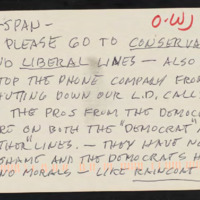 O-WJ
-SPAN-
PLEASE GO TO CONSERVA
ND LIBERAL LINES - ALSO
TOP THE PHONE COMPANY FROM
HUTTING DOWN OUR L.D. CALL
THE PROS FROM THE DEMOC
RE ON BOTH THE "DEMOCRAT" A
THER" LINES. - THEY HAVE NO
SHAME AND THE DEMOCRATS H
NO MORALS - LIKE RAINCOAT